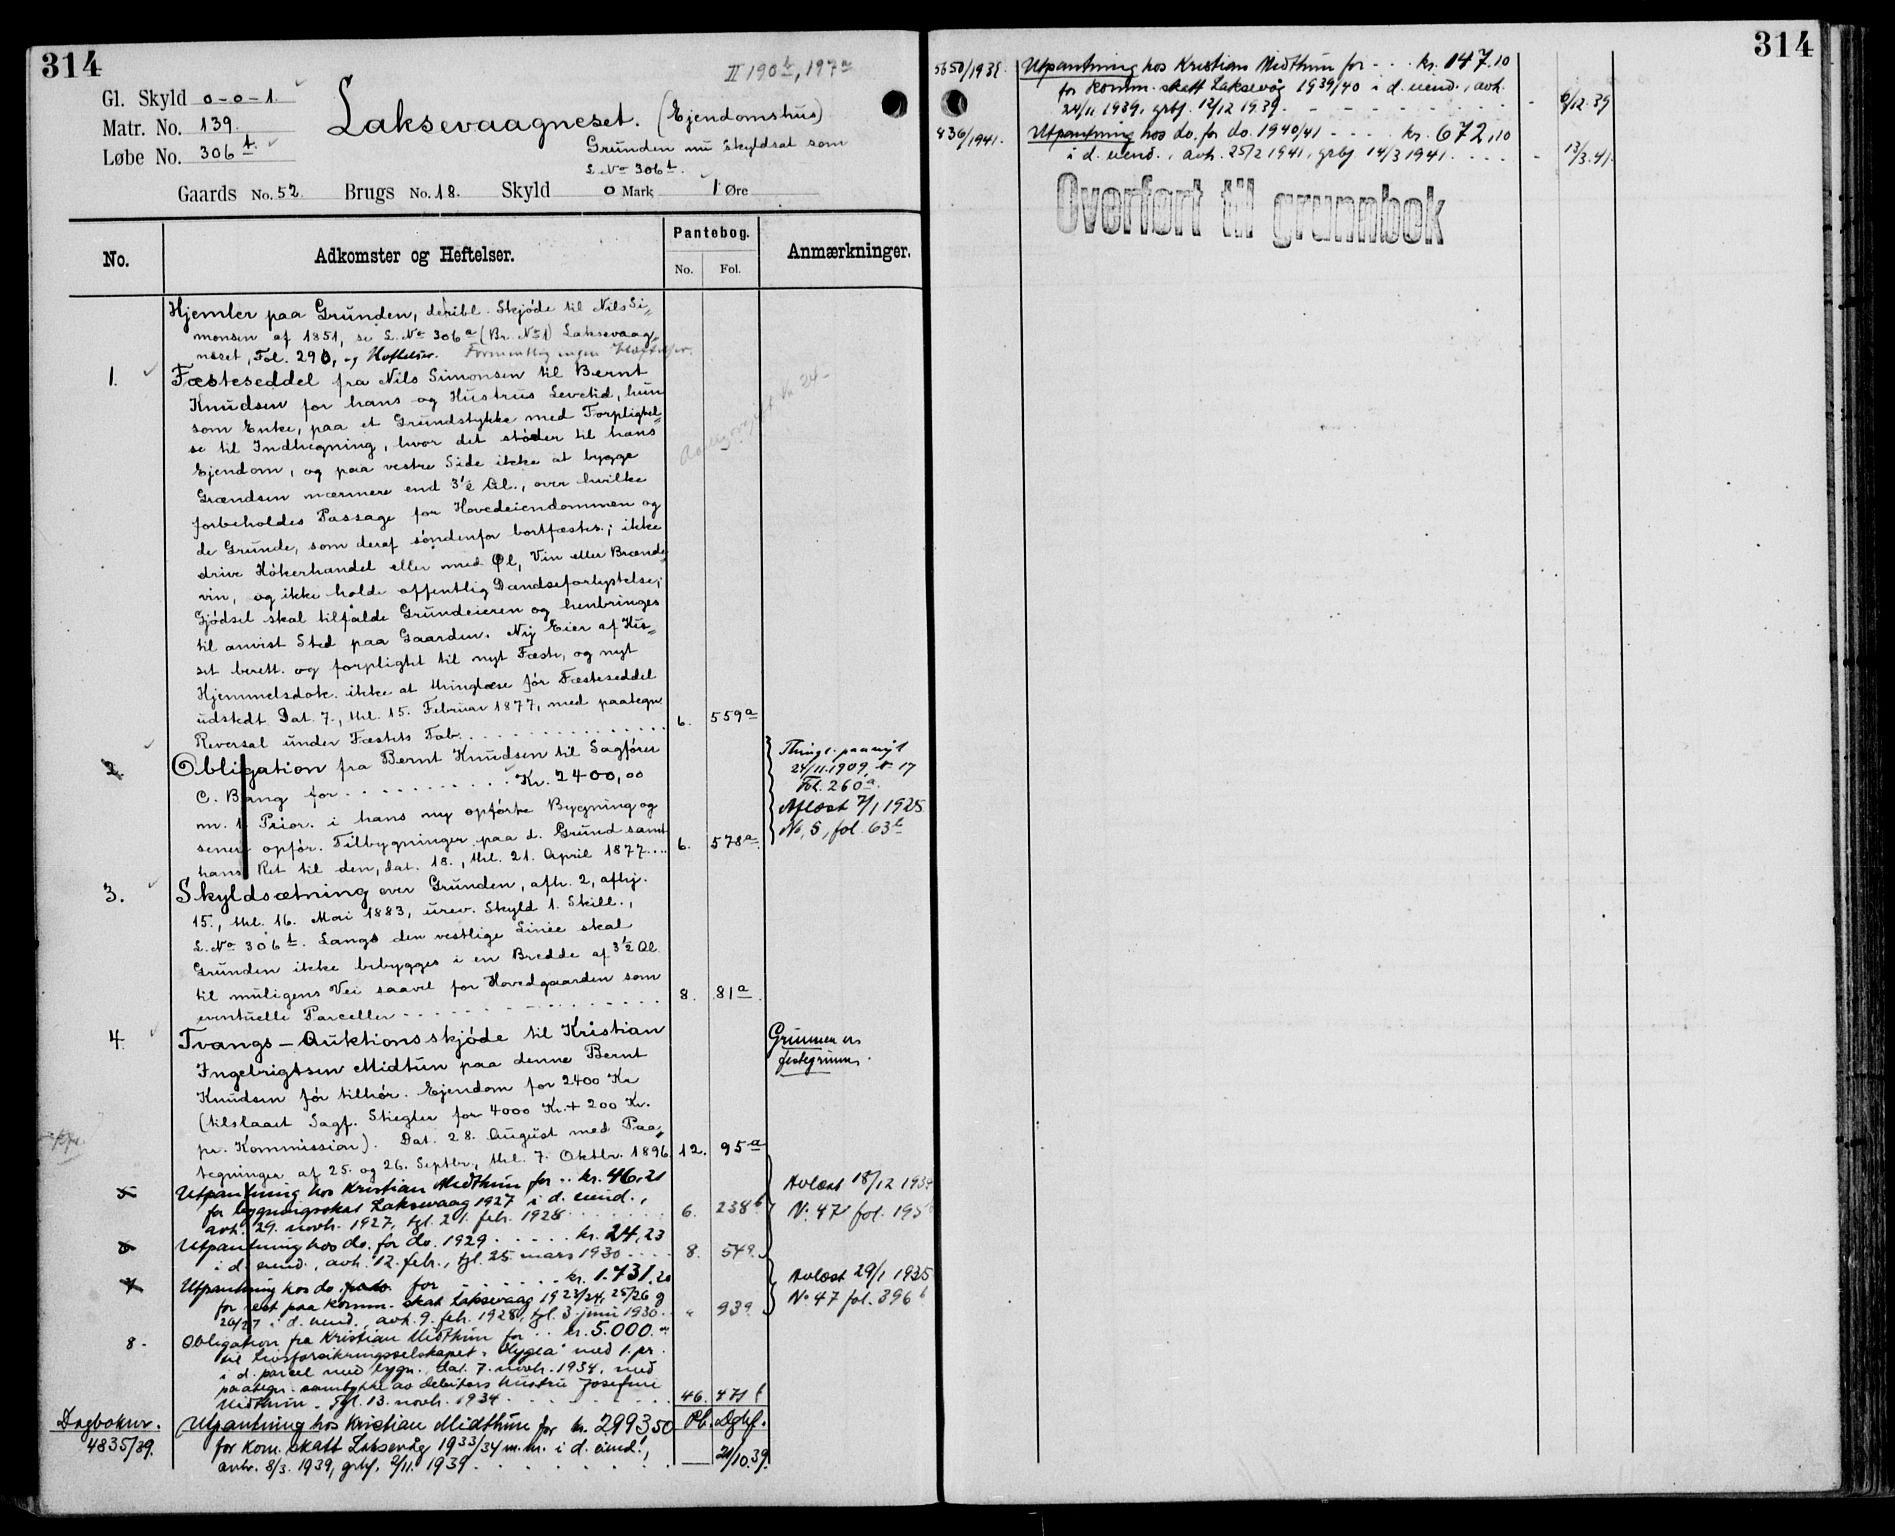 314
II 190b, 197a
Gl. Skyld 0-0-1
Matr. No. 139.
Løbe No. 306t.
Laksevaagneset. (Ejendomshus)
Grunden nu skyldsat som
L. No 306t.
Gaards No. 52. Brugs No. 18. Skyld 0 Mark 1 Øre
No. Adkomster og Heftelser. Pantebog. No. Fol. Anmærkninger.
Hjemler paa Grunden, deribl. Skjøde til Nils Si=
monsen af 1851, se L. No 306a (Br. No 1) Laksevaag=
neset, Fol. 290, og Heftelser. Forment­lig ingen Heftelser.
1. Fæsteseddel fra Nils Simonsen til Bernt
Knudsen for hans og Hustrus Levetid, hun
som Enke, paa et Grundstykke med Forpligtel=
se til Indhegning, hvor det støder til hans
Ejendom, og paa vestre Side ikke at bygge
Grændsen nærmere end 3½ Al., over hvilke
forbeholdes Passage for Hovedeiendommen og
de Grunde, som deraf søndenfor bortfæstes; ikke
drive Høkerhandel eller med Øl, Vin eller Brænde=
vin, og ikke holde offentlig Dandseforlystelse;
Gjødsel skal tilfalde Grundeieren og henbringes
til anvist Sted paa Gaarden. Ny Eier af Hu=
set berett. og forpligtet til nyt Fæste, og nyt
Hjemmelsdok. ikke at thinglæse før Fæsteseddel
udstedt. Dat. 7., thl. 15. Februar 1877, med paategn.
Reversal under Fæstets Tab. 6. 559a
2. Obligation fra Bernt Knudsen til Sagfører
C. Bang for Kr. 2400,00
m. 1. Prior. i hans ny opførte Bygning og
senere opfør. Tilbygninger paa d. Grund samt
hans Ret til den, dat. 18., thl. 21. April 1877 6. 578a.
Thingl. paa nyt
24/11.1909, No 17
Fol. 260a.
Aflæst 7/1 1925
No. 5, fol. 63b
3. Skyldsætning over Grunden, afh. 2, afhj.
15., thl. 16. Mai 1883, urev. Skyld 1. Skill.,
L. No 306t. Langs den vestlige Linie skal
Grunden ikke bebygges i en Bredde af 3½ Al.
til muligens Vei saavel for Hovedgaarden som
eventuelle Parceller 8. 81a.
4. Tvangs-Auktionsskjøde til Kristian
Ingebrigtsen Midtun paa denne Bernt
Knudsen før tilhør. Ejendom for 2400 Kr
(tilslaaet Sagf. Stiegler for 4000 Kr. + 200 Kr.
pr. Kommission). Dat. 28. August med Paa=
tegninger af 25. og 26. Septbr., thl. 7. Oktbr. 1896 12. 95a
Grunnen er
festegrunn.
5 Utpantning hos Kristian Midthun for kr. 46,21
for bygningsskat Laksevaag 1927 i d. eiend.,
avh. 29. novbr. 1927, tgl. 21. febr. 1928 6. 238b
Avlæst 18/12 1934
No. 47 fol. 195
6 Utpantning hos do. for do. 1929 kr. 24,23
i d. eiend., avh. 12. febr., tgl. 25. mars 1930 8. 54a.
7 Utpantning hos do. for kr. 1.731.20
for rest paa komm. skat Laksevaag 1923/24, 25/26 og
26/27 i d. eiend., avh. 9. febr. 1928, tgl. 3. juni 1930 " 93a
Avlæst 29/1 1935
No 47 fol. 396b
8. Obligation fra Kristian Midthun for kr. 5.000.00
til Livsforsikringsselskapet "Hygea" med 1. pr.
i d. parcel med bygn. Dat. 7. novbr. 1934, med
paategn. samtykke av debitors hustru Josefine
Midthun. Tgl. 13. novbr. 1934 46. 471b
Dagboknr.
4835/39.
Utpantning hos Kristian Midthun for kr. 299350 Pb. Dgbf.
for kom. skatt Laksevåg 1933/34 m.m. i d. eiend.,
avh. 8/3. 1939, grbf. 2/11. 1939 — 21/10.39.
314
5650/1939. Utpantning hos Kristian Midthun for kr. 147.10
for komm. skatt Laksevåg 1939/40 i d. eiend., avh.
24/11 1939, grbf. 12/12 1939. - 6/12.39
836/1941. Utpantning hos do. for do. 1940/41 kr. 672,10
i d. eiend., avh. 25/2 1941, grbf. 14/3 1941. - 13/3.41.
Overført til grunnbok